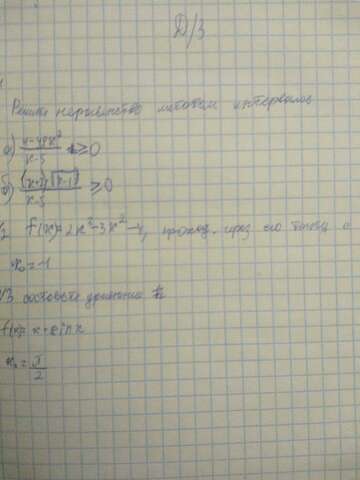 Д/З
Решить неравенство методом интервалов
а) (x-49x²)/(x-5) ≥0
б) (x+2)(x-1)/(x-5) ≥0
2 f(x)=2x³-3x²-4, проход. через его точку с
x₀=-1
√3 составьте уравнение
f(x)= x+sinx
x₀=π/2